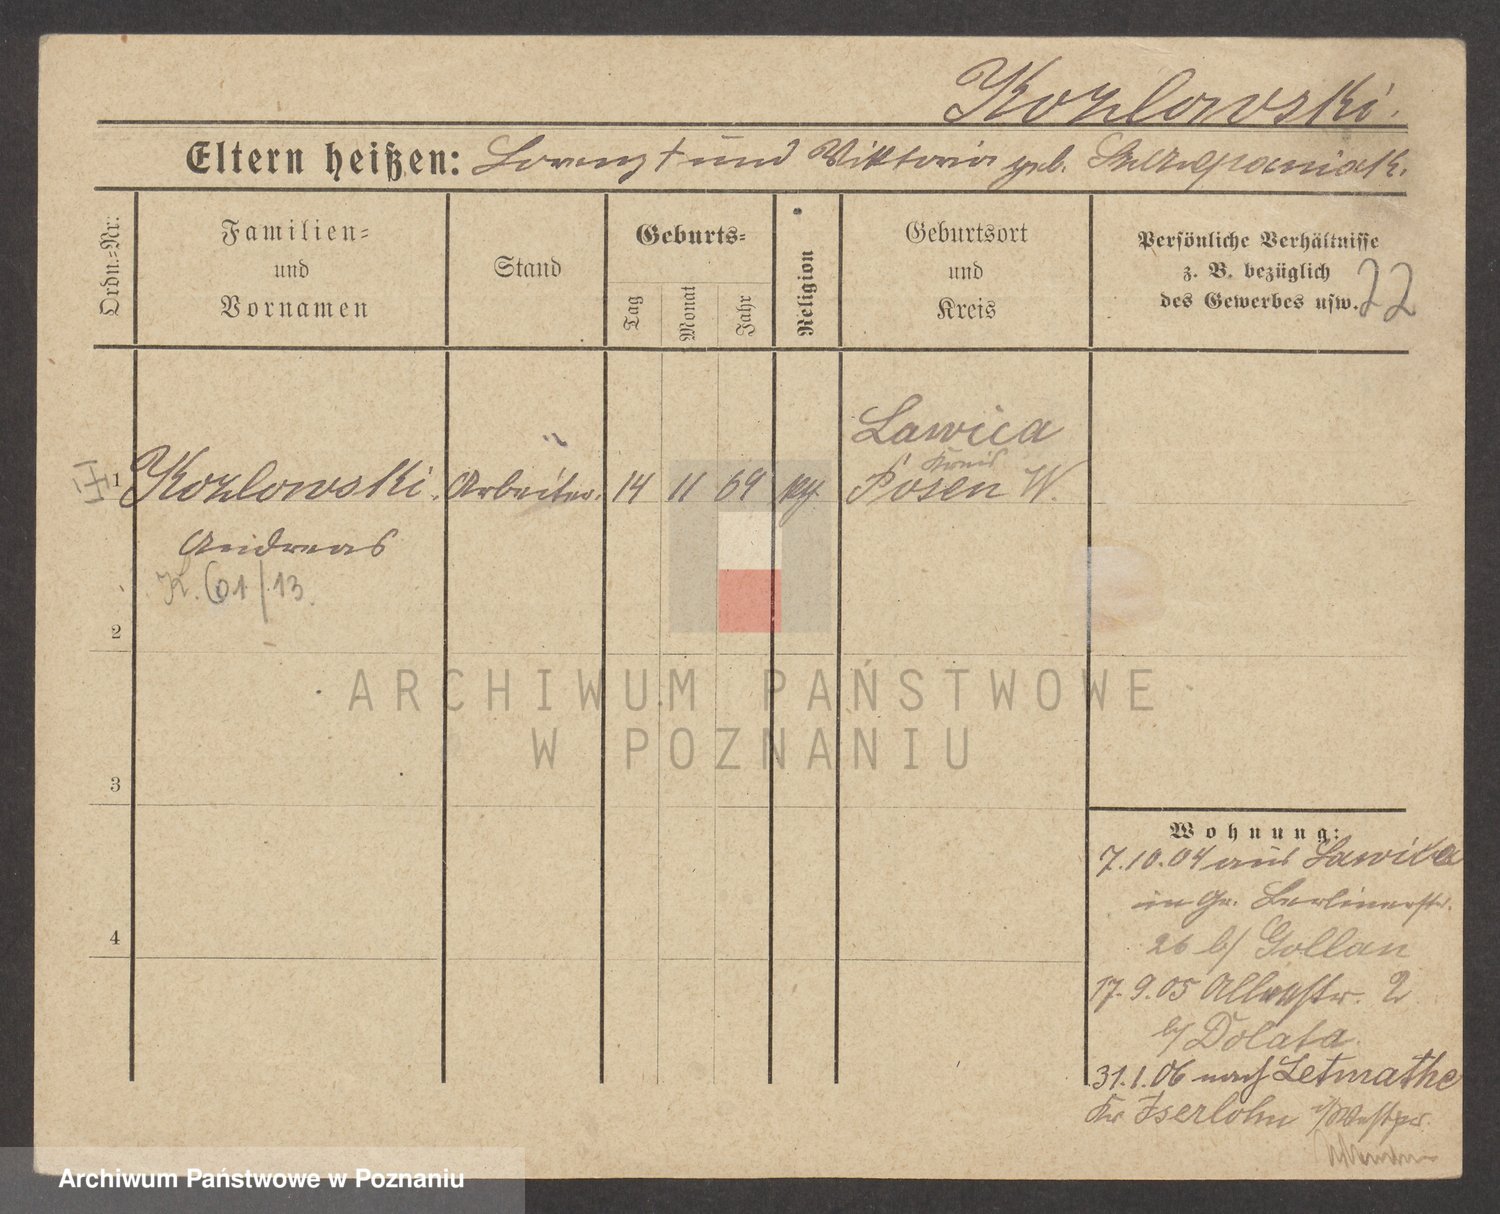 Kozlowski.
Eltern heißen: Lorenz † und Viktoria geb. Szczepaniak.
Ordn.-Nr.
Familien-
und
Vornamen
Stand
Geburts-
Tag
Monat
Jahr
Religion
Geburtsort
und
Kreis
Persönliche Verhältnisse
z. B. bezüglich
des Gewerbes usw.
22
1
Kozlowski.
Andreas
K. 61/13.
Arbeiter.
14
11
69
Lawica
Kreis
Posen W.
2
3
4
Wohnung:
7.10.04 aus Lawica
in Gr. Berlinerstr.
26 b/ Gollan
17.9.05 str. 2
b/ Dolata.
31.1.06 nach Letmathe
Kr Iserlohn
ARCHIWUM PAŃSTWOWE
W POZNANIU
Archiwum Państwowe w Poznaniu